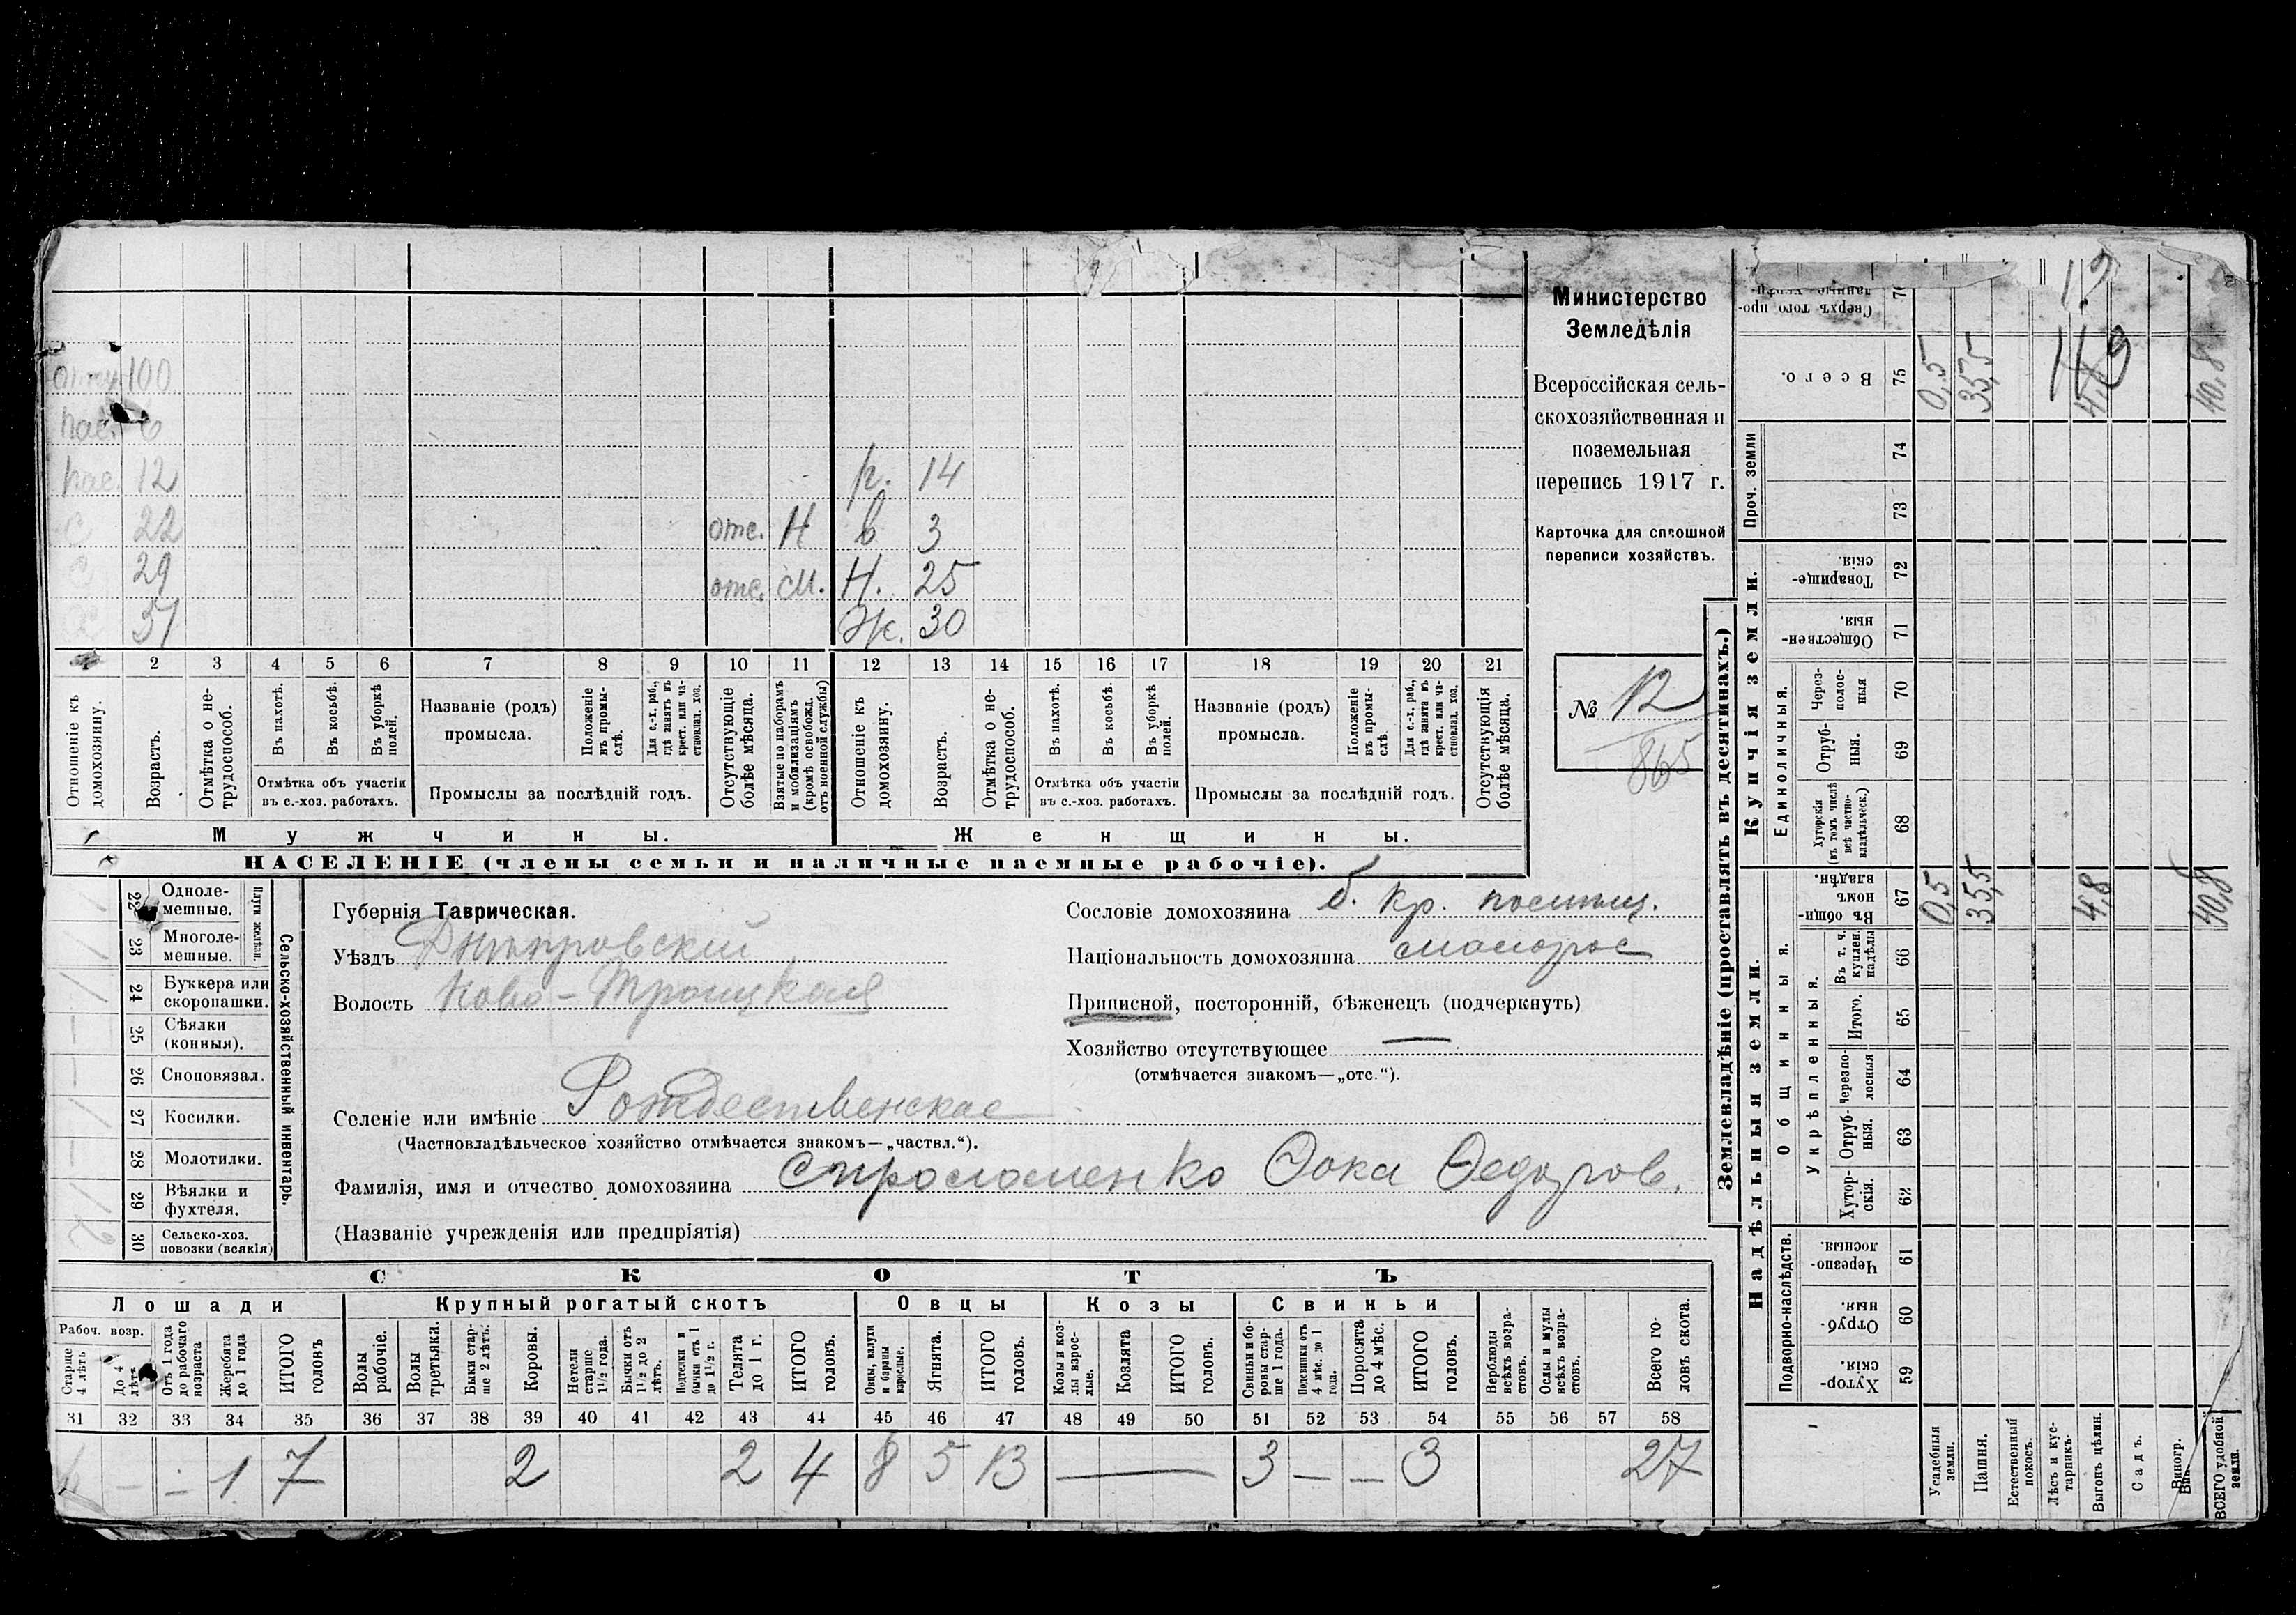 Министерство
Земледѣлія
Всероссійская сель-
скохозяйственная и
поземельная
перепись 1917 г.
Карточка для сплошной
переписи хозяйствъ.
№ 12
865
100
пас. 6
пас. 12 р. 14
с 22 отс. Н в 3
29 отс. см. Н. 25
37 Ж. 30
1 2 3 4 5 6 7 8 9 10 11 12 13 14 15 16 17 18 19 20 21
Отношеніе къ домохозяину.
Возрастъ.
Отмѣтка о не-трудоспособ.
Въ пахотѣ.
Въ косьбѣ.
Въ уборкѣ полей.
Отмѣтка объ участіи
въ с.-хоз. работахъ.
Названіе (родъ)
промысла.
Положеніе въ промы-слѣ.
Для с.-х. раб., гдѣ занятъ въ крест. или ча-стновлад. хоз.
Промыслы за послѣдній годъ.
Отсутствующіе болѣе мѣсяца.
Взятые по наборамъ и мобилизаціямъ (кромѣ освобожд. отъ военной службы)
Отношеніе къ домохозяину.
Возрастъ.
Отмѣтка о не-трудоспособ.
Въ пахотѣ.
Въ косьбѣ.
Въ уборкѣ полей.
Отмѣтка объ участіи
въ с.-хоз. работахъ.
Названіе (родъ)
промысла.
Положеніе въ промы-слѣ
Для с.-х. раб., гдѣ занята въ крест. или ча-стновлад. хоз.
Промыслы за послѣдній годъ.
Отсутствующія болѣе мѣсяца.
Мужчины. Женщины.
НАСЕЛЕНІЕ (члены семьи и наличные наемные рабочіе).
Сельско-хозяйственный инвентарь.
Плуги желѣзн.
22 Одноле-мешные.
23 Многоле-мешные.
24 Буккера или скоропашки.
25 Сѣялки (конныя).
26 Сноповязал.
27 Косилки.
28 Молотилки.
29 Вѣялки и фухтеля.
30 Сельско-хоз. повозки (всякія)
Губернія Таврическая.
Уѣздъ Днѣпровскій
Волость Ново-Троицкая
Селеніе или имѣніе Рождественское
(Частновладѣльческое хозяйство отмѣчается знакомъ—„частвл.“).
Сословіе домохозяина б. кр. поселян.
Національность домохозяина малорос
Приписной, посторонній, бѣженецъ (подчеркнуть)
Хозяйство отсутствующее —
(отмѣчается знакомъ—„отс.“).
Фамилія, имя и отчество домохозяина Фока Федоров.
(Названіе учрежденія или предпріятія)
СКОТЪ
Лошади Крупный рогатый скотъ Овцы Козы Свиньи
Рабоч. возр.
Старше 4 лѣтъ
До 4 лѣтъ
Отъ 1 года до рабочаго возраста
Жеребята до 1 года
ИТОГО головъ
Волы рабочіе.
Волы третьяки.
Быки стар-ше 2 лѣтъ.
Коровы.
Нетели старше 1½ года.
Бычки отъ 1½ до 2 лѣтъ.
Подтелки и бычки отъ 1 до 1½ г.
Телята до 1 г.
ИТОГО головъ.
Овцы, валухи и бараны взрослые.
Ягнята.
ИТОГО головъ.
Козы и коз-лы взрос-лые.
Козлята
ИТОГО головъ.
Свиньи и бо-ровы стар-ше 1 года.
Подсвинки отъ 4 мѣс. до 1 года.
Поросята до 4 мѣс.
ИТОГО головъ.
Верблюды всѣхъ возра-стовъ.
Ослы и мулы всѣхъ возра-стовъ.
Всего го-ловъ скота.
31 32 33 34 35 36 37 38 39 40 41 42 43 44 45 46 47 48 49 50 51 52 53 54 55 56 57 58
6 — — 1 7 2 2 4 8 5 13 — 3 — — 3 27
Землевладѣніе (проставлять въ десятинахъ.)
Купчія земли.
Надѣльныя земли.
Сверхъ того про-
76
Всего. 75 0,5 35,5 40,8
Проч. земли 74 73
Товарище-скія. 72
Обществен-ныя. 71
Единоличныя.
Через-полос-ныя 70
Отруб-ныя. 69
Хуторскія (въ томъ числѣ всѣ частно-владѣльческ.) 68
Общинныя.
Въ общи-номъ владѣн. 67 0,5 35,5 4,8 40,8
Укрѣпленныя.
Въ т. ч. куплен. надѣлы 66
Итого. 65
Черезпо-лосныя 64
Отруб-ныя. 63
Хутор-скія. 62
Подворно-наслѣдств.
Черезпо-лосныя. 61
Отруб-ныя. 60
Хутор-скія. 59
Усадебныя земли.
Пашня.
Естественный покосъ.
Лѣсъ и кус-тарникъ.
Выгонъ цѣлин.
Садъ.
Виногр.
ВСЕГО удобной земли.